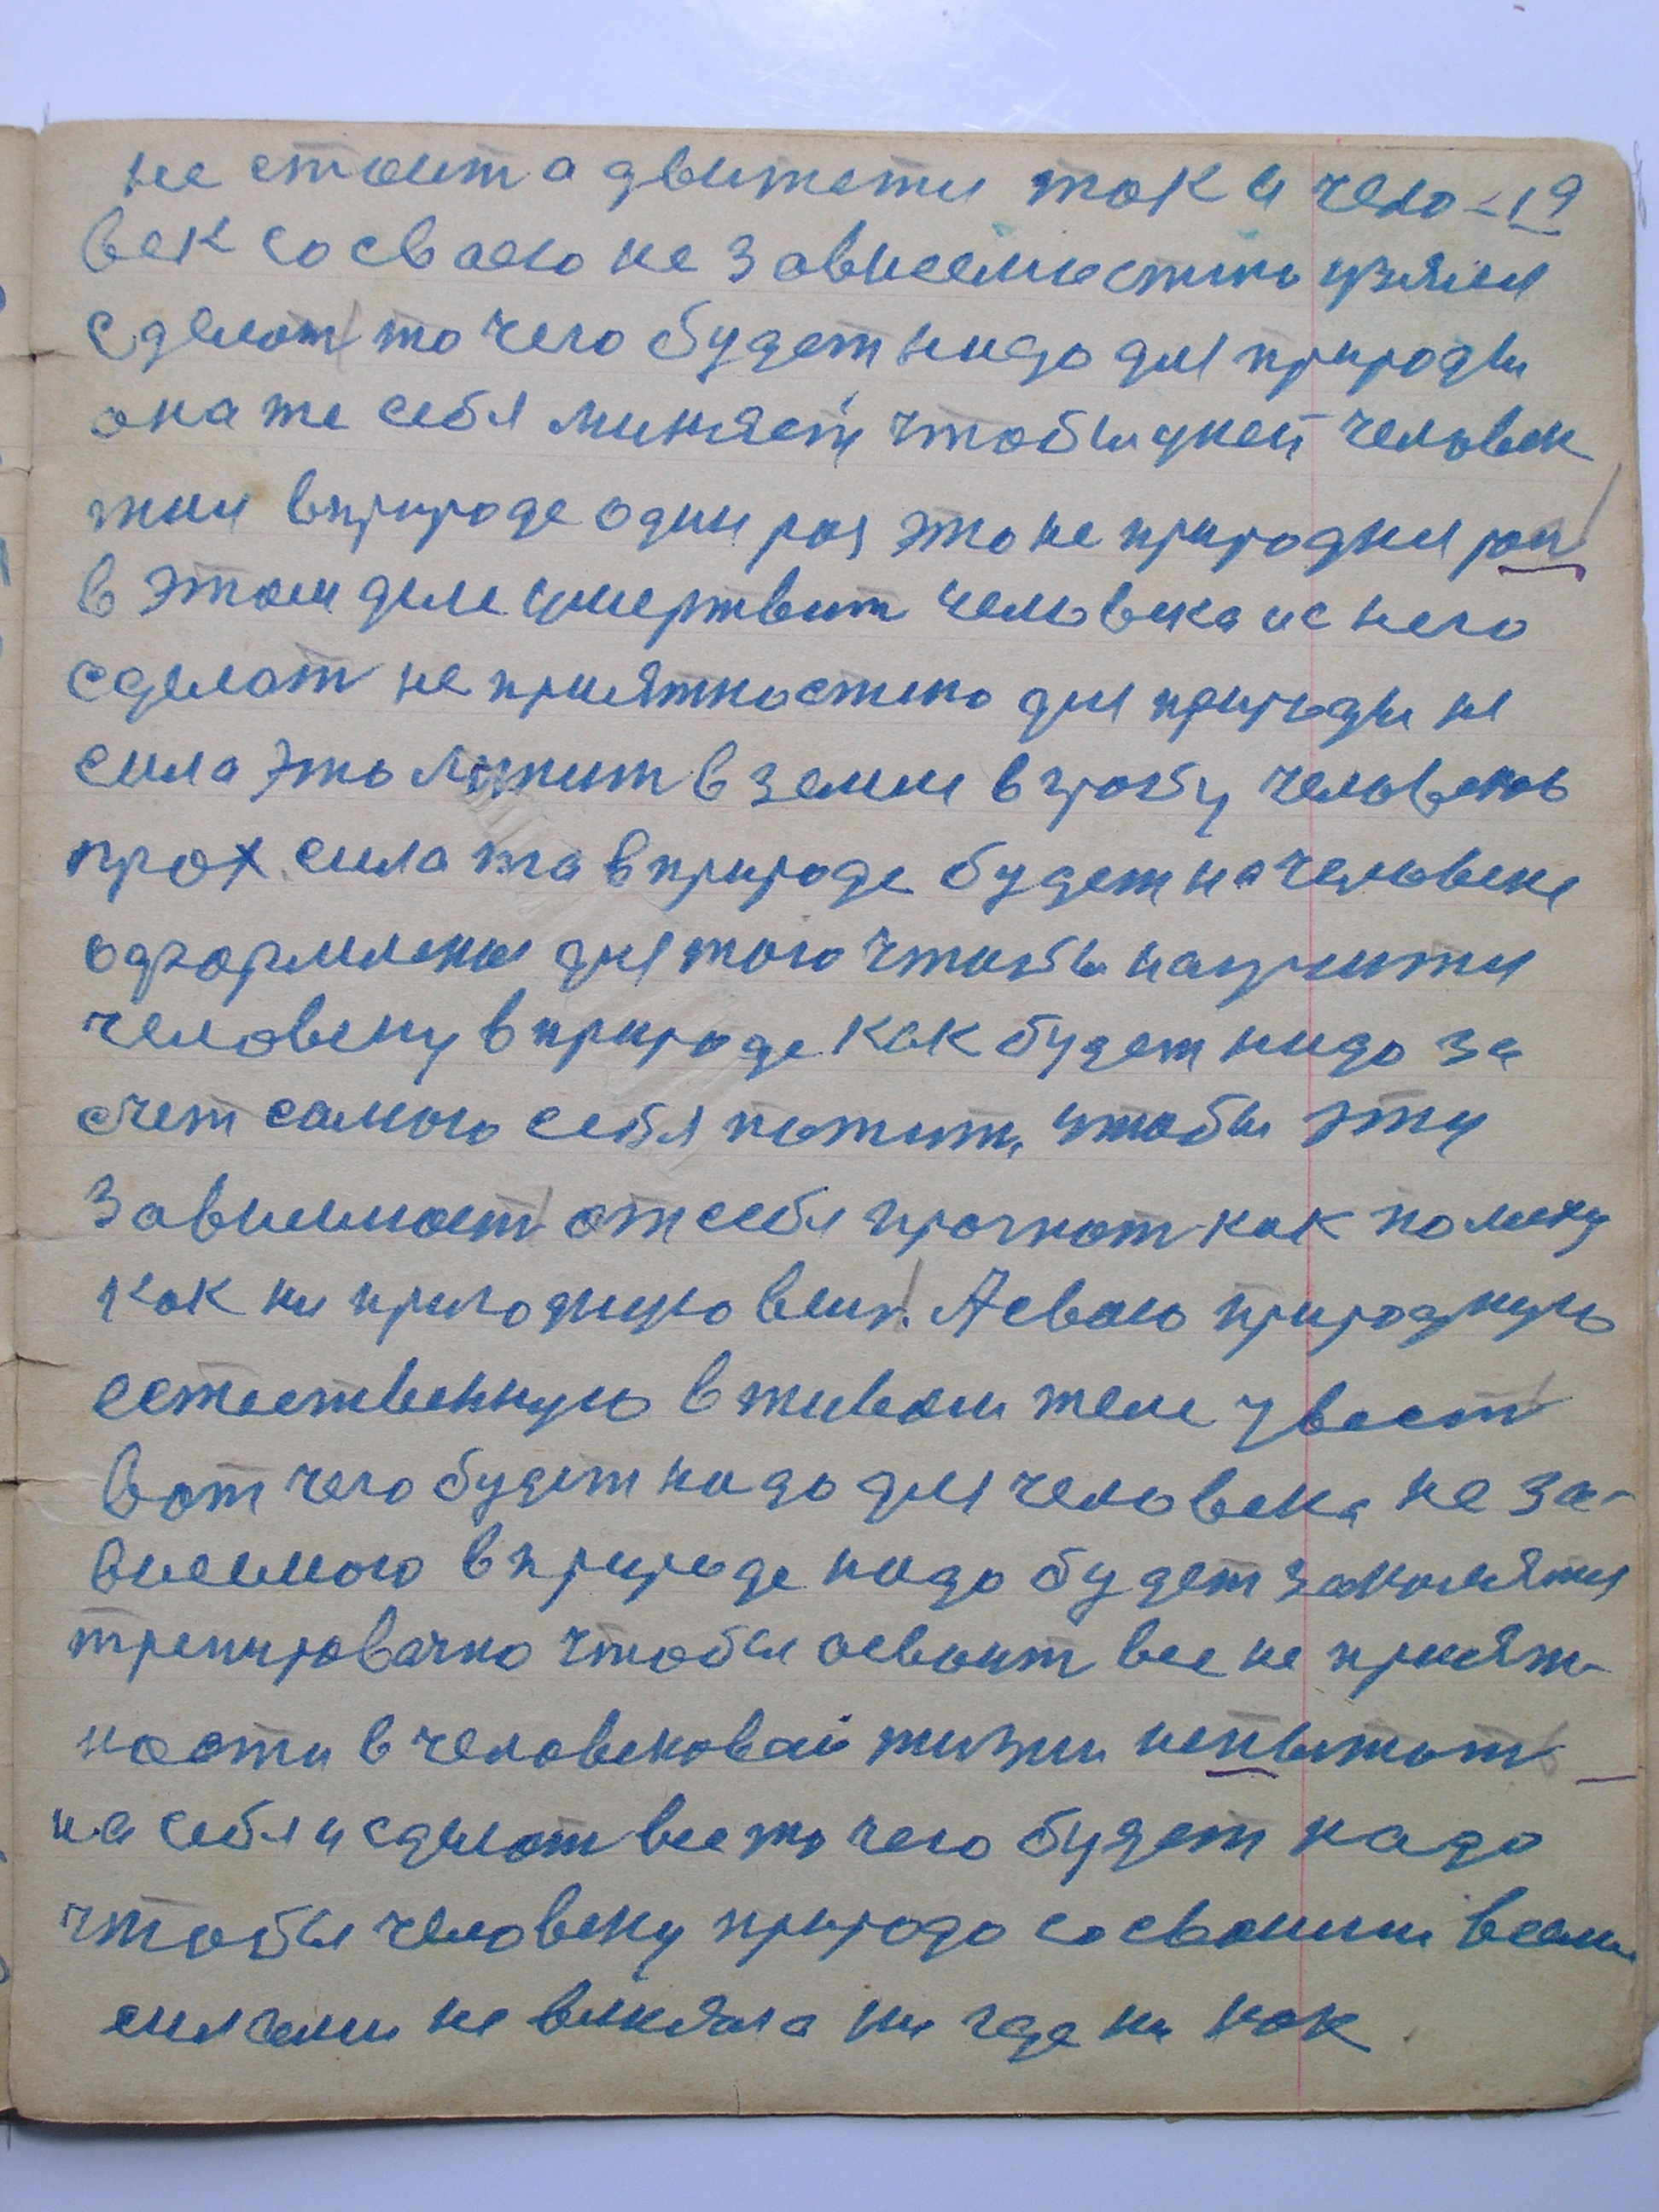 не стоит а движети так и чело - 19
век со своею не зависемостью узяли
сделат то чего будет нидо для природы
она же себя миняет чтобы уней человек
жил вприроде один раз это не природния
в этом деле умертвит человека ис него
сделат не приятностию для природы не
сила это лижит в земли в гробу человеков
прах. сила та вприроде будет на человеке
одгормлена для того чтобы научити
человеку вприроде как будет нидо за
счет самого себя пожить чтобы эту
зависимост от себя прогнат как помеху
как ни пригодную вещ. А свою природную
естественную в живом теле увест
вот чего будет надо для человека не за-
висемого вприроде надо будет заколятия
тренировачно чтобы освоит все не прият-
ности в человековай жизни испытат
на себя и сделат все то чего будет надо
чтобы человеку природа со своими всеми
силами не влияла ни где ни как.